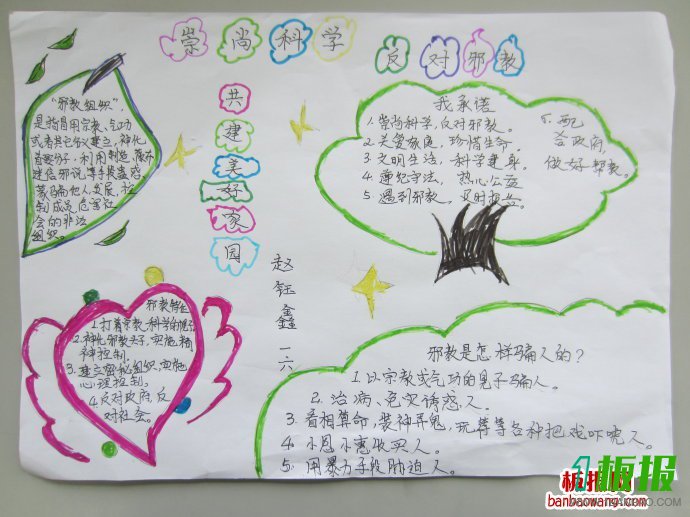 崇尚科学
反对邪教
共建美好家园
赵钰鑫 一六
"邪教组织"
是指冒用宗教、气功
或者其它名义建立,神化
首要分子,利用制造、散布
迷信邪说等手段蛊惑
蒙骗他人,发展、控
制成员,危害社
会的非法
组织。
我承诺
1.崇尚科学,反对邪教。
2.关爱家庭,珍惜生命。
3.文明生活,科学健身。
4.遵纪守法,热心公益
5.遇到邪教,及时报告。
6.配
合政府,
做好帮教。
邪教特征
1.打着宗教科学的幌子
2.神化邪教头子,实施精
神控制。
3.建立秘密组织,实施
心理控制。
4.反对政府,反
对社会。
邪教是怎样骗人的?
1.以宗教或气功的兒子骗人。
2.治病、免灾诱惑人。
3.看相算命,装神弄鬼,玩等等各种把戏吓唬人。
4.小恩小惠收买人。
5.用暴力手段胁迫人。
板报
板报网
banbaowang.com